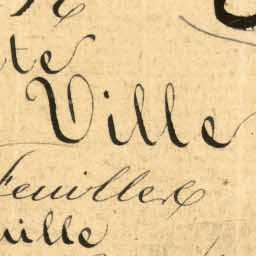 te
Ville
Feuillere
uille